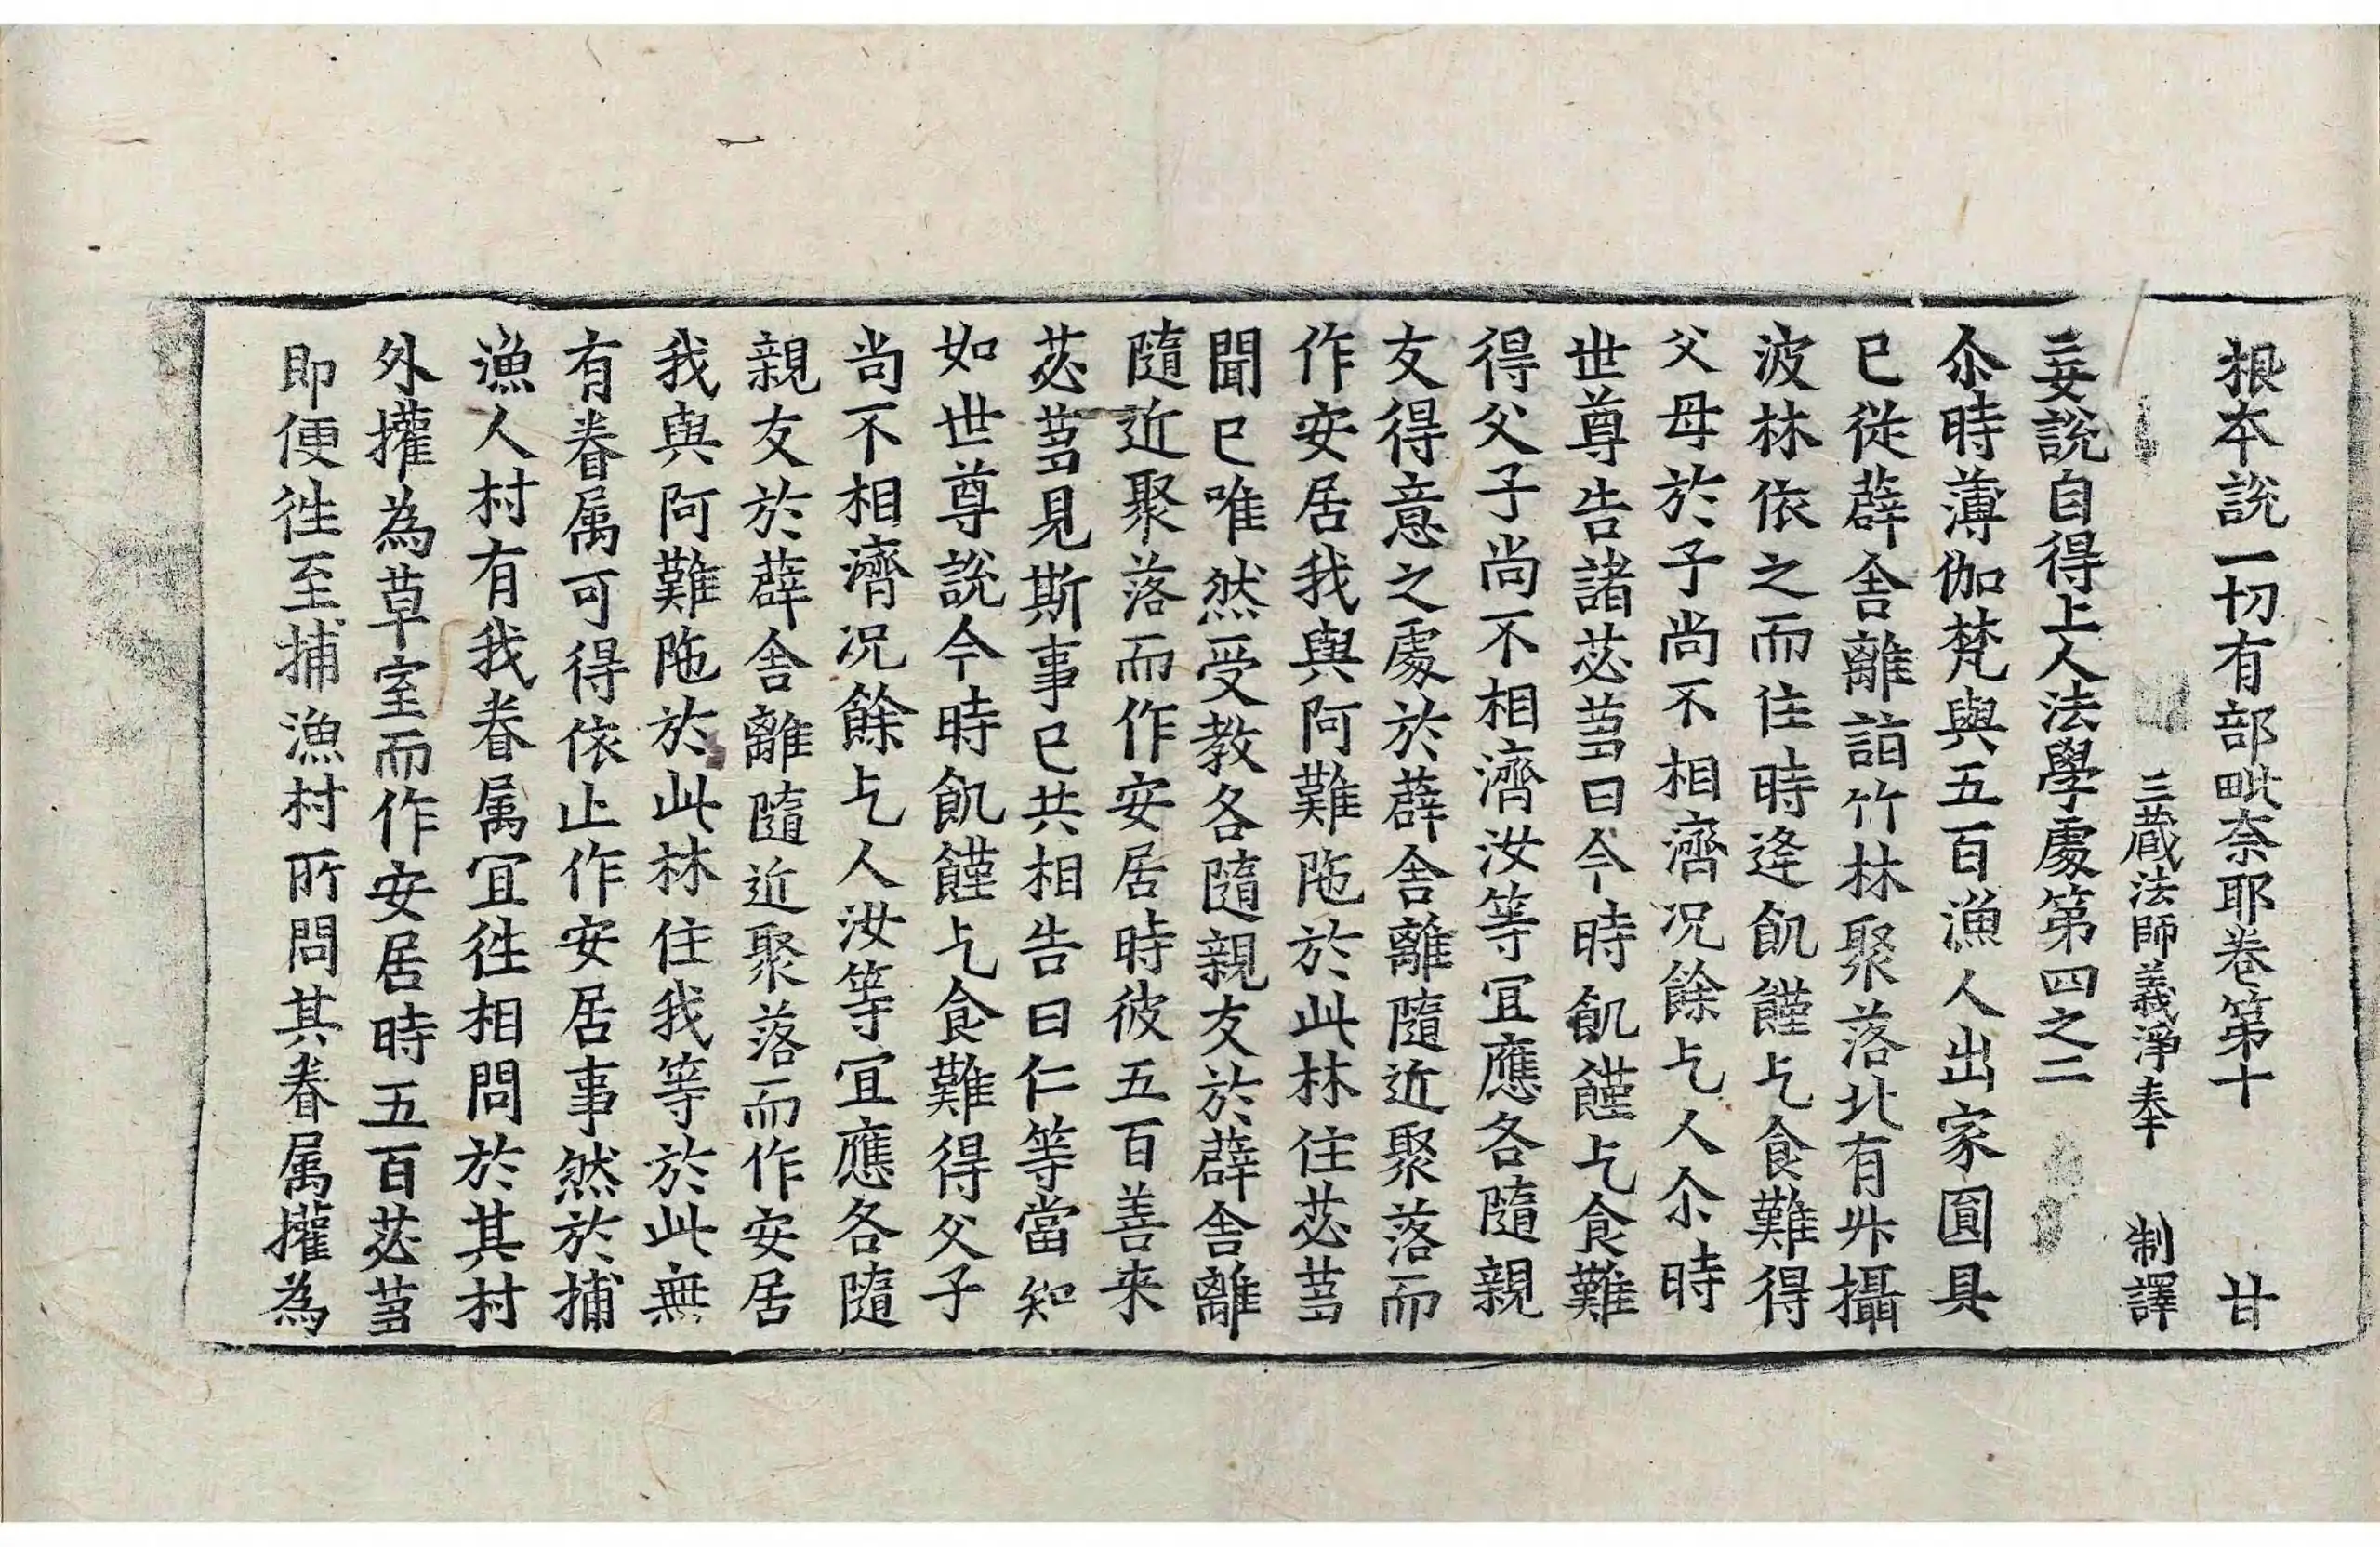 根本說一切有部毗奈耶卷第十 甘
三藏法師義淨奉 制譯
妄說自得上人法學處第四之二
尒時薄伽梵與五百漁人出家圓具
已從薜舍離詣竹林聚落北有升攝
波林依之而住時逢飢饉乞食難得
父母於子尚不相濟况餘乞人尒時
世尊告諸苾芻曰今時飢饉乞食難
得父子尚不相濟汝等冝應各隨親
友得意之處於薜舍離隨近聚落而
作安居我與阿難陁於此林住苾芻
聞已唯然受教各隨親友於薜舍離
隨近聚落而作安居時彼五百善来
苾芻見斯事已共相告曰仁等當知
如世尊說今時飢饉乞食難得父子
尚不相濟况餘乞人汝等冝應各隨
親友於薜舍離隨近聚落而作安居
我與阿難陁於此林住我等於此無
有眷属可得依止作安居事然於捕
漁人村有我眷属冝往相問於其村
外攉為草室而作安居時五百苾芻
即便往至捕漁村所問其眷属攉為